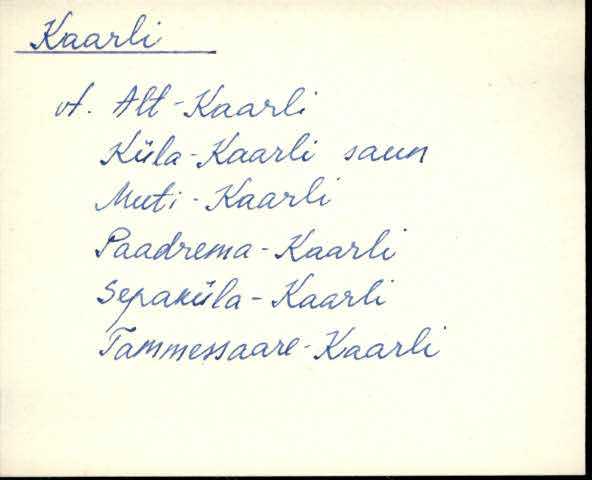 Kaarli
vt. Alt-Kaarli
Küla-Kaarli saun
Muti-Kaarli
Paadrema-Kaarli
Sepaküla-Kaarli
Tammessaare-Kaarli